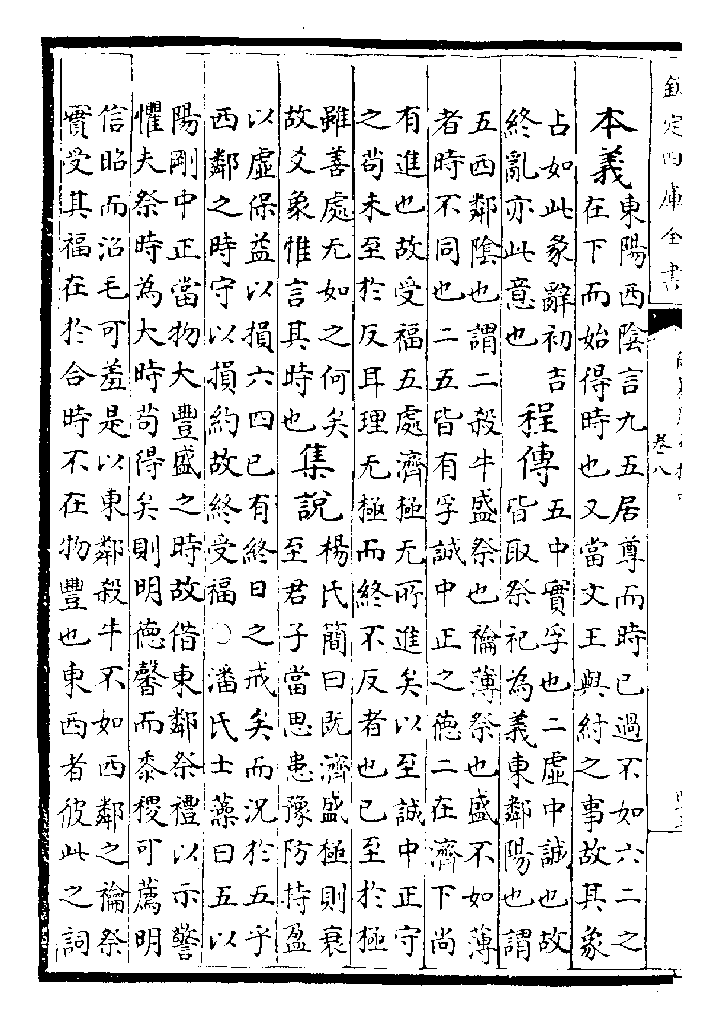 欽定四庫全書
卷八
本義東陽西陰言九五居尊而時已過不如六二之
在下而始得時也又當文王與紂之事故其象
占如此象辭初吉
終亂亦此意也
程傳五中實孚也二虛中誠也故
皆取祭祀為義東鄰陽也謂
五西鄰陰也謂二殺牛盛祭也禴薄祭也盛不如薄
者時不同也二五皆有孚誠中正之德二在濟下尚
有進也故受福五處濟極无所進矣以至誠中正守
之苟未至於反耳理无極而終不反者也已至於極
雖善處无如之何矣
故爻象惟言其時也
集說楊氏簡曰既濟盛極則衰
至君子當思患豫防持盈
以虛保益以損六四已有終日之戒矣而況於五乎
西鄰之時守以損約故終受福○潘氏士藻曰五以
陽剛中正當物大豐盛之時故借東鄰祭禮以示警
懼夫祭時為大時苟得矣則明德馨而黍稷可薦明
信昭而沼毛可羞是以東鄰殺牛不如西鄰之禴祭
實受其福在於合時不在物豐也東西者彼此之詞